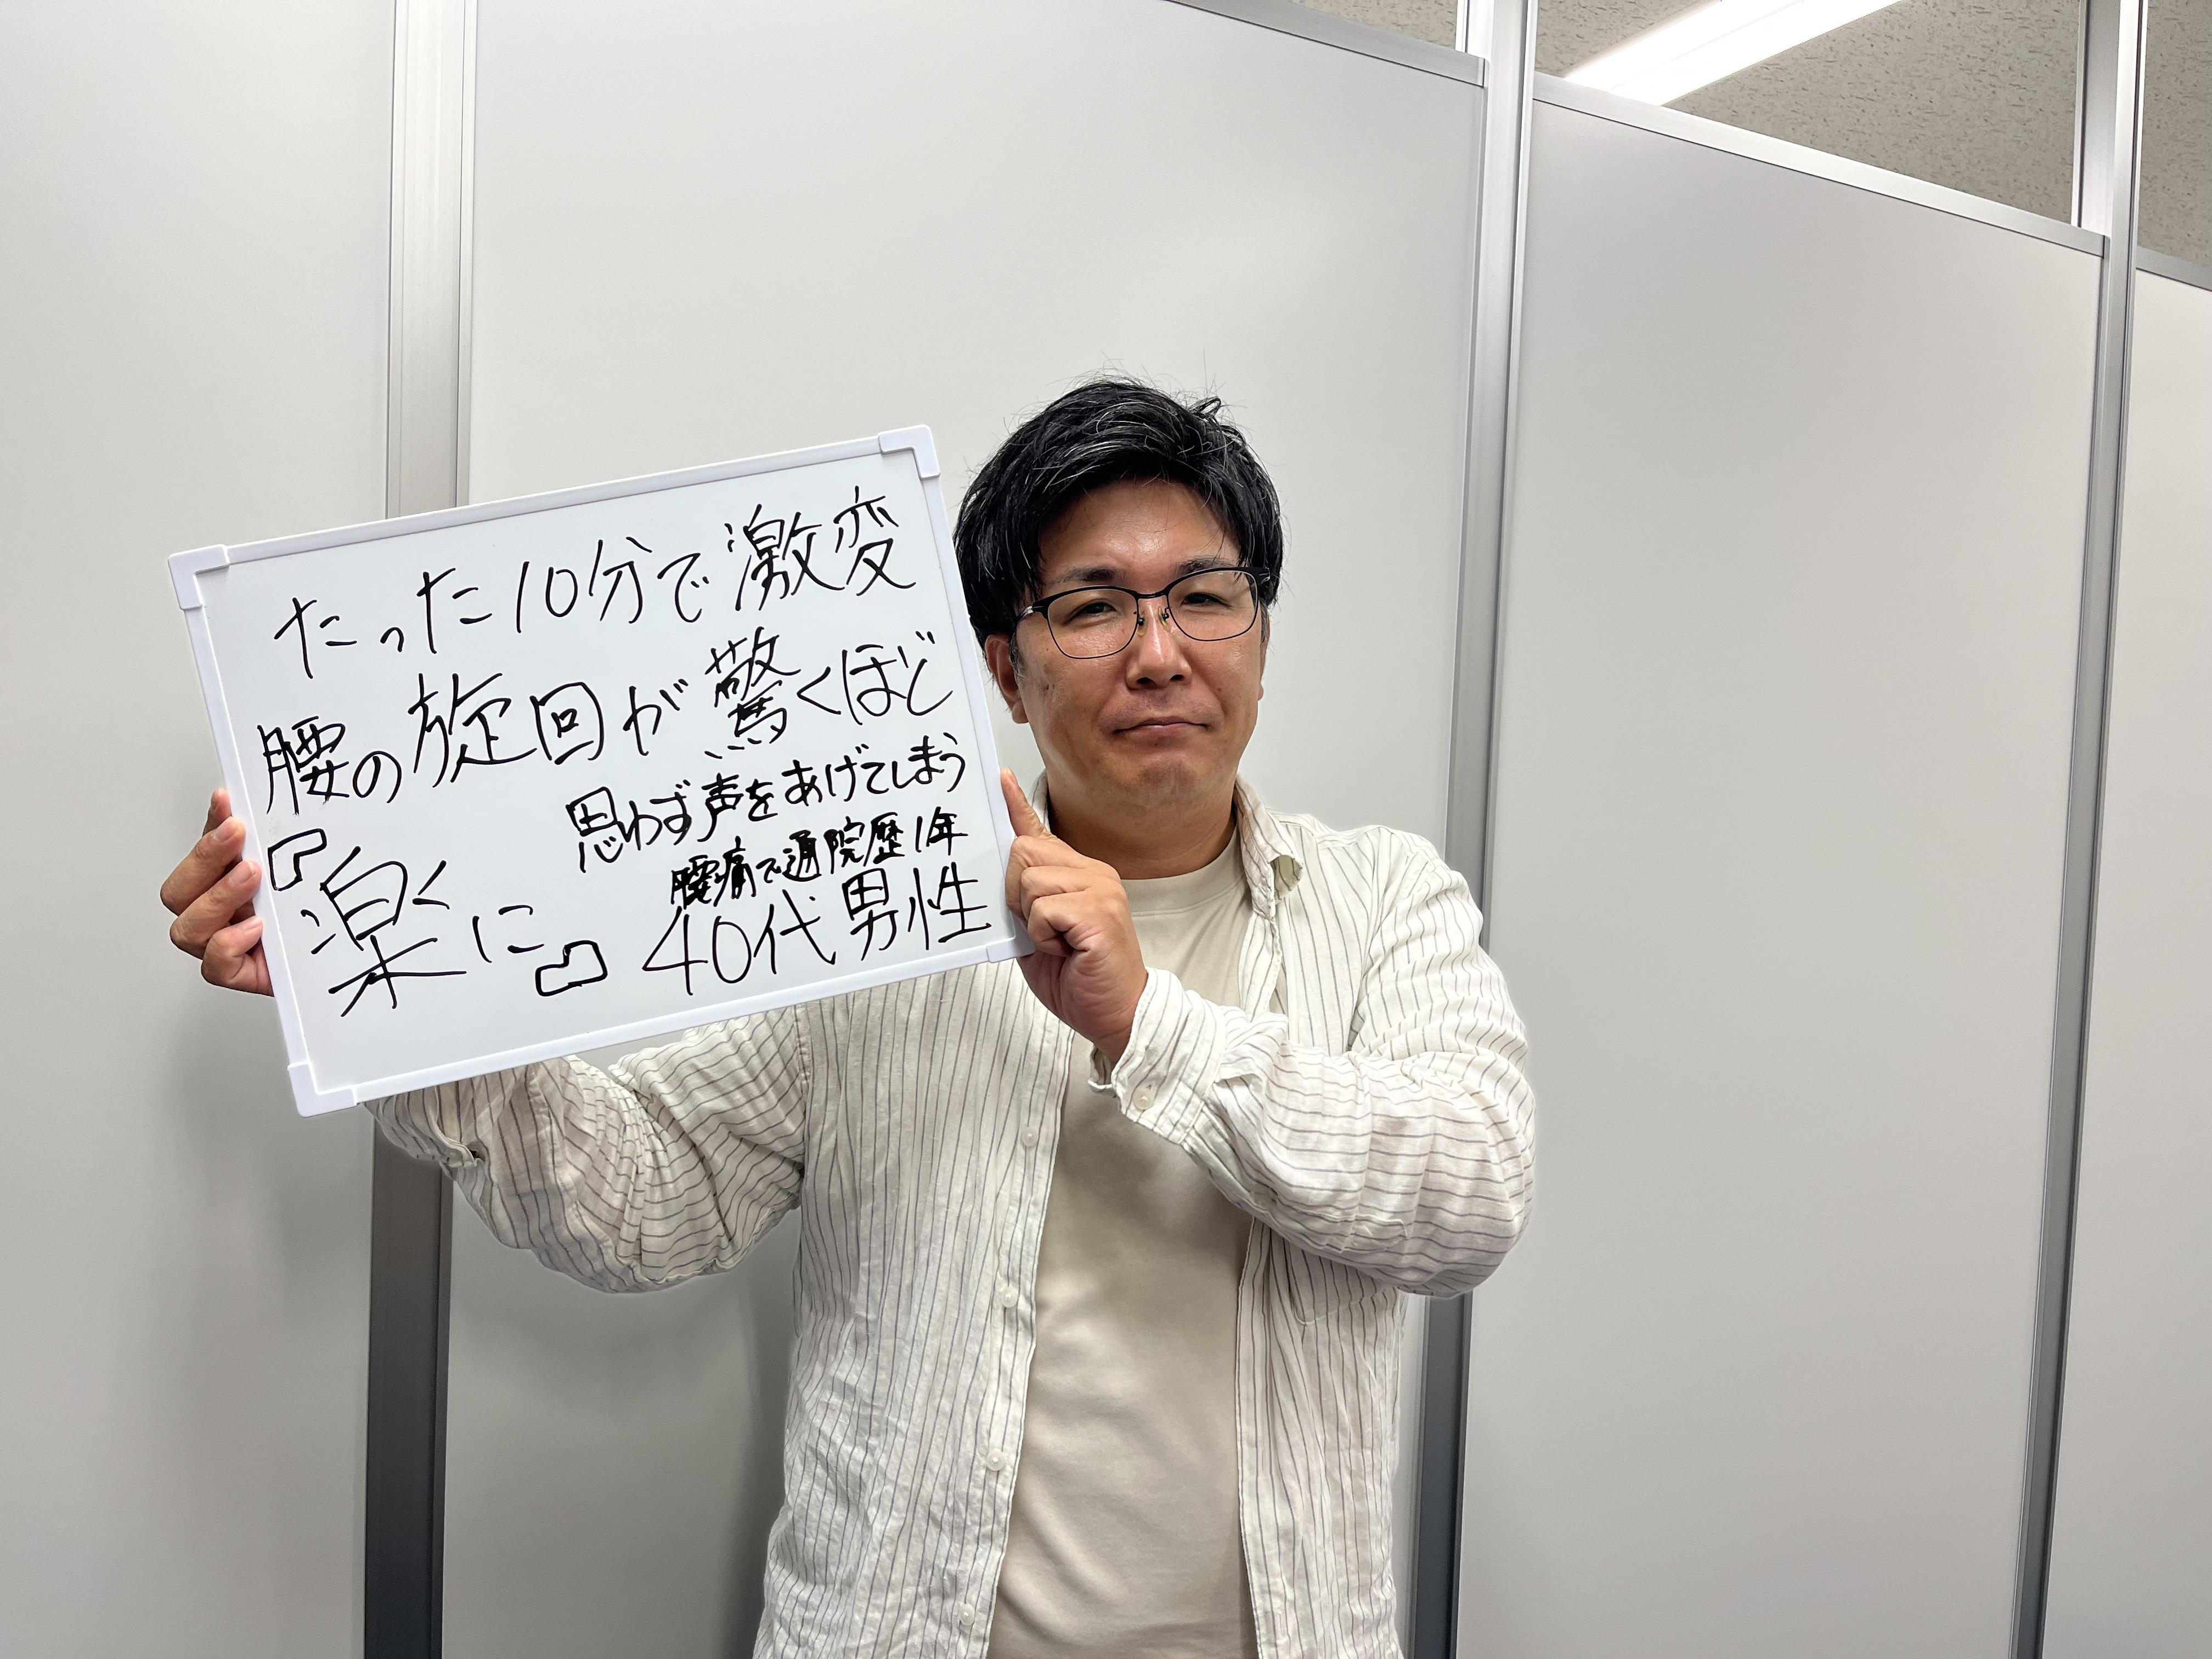 たった10分で激変
腰の旋回が驚くほど
思わず声をあげてしまう
『楽に』
腰痛で通院歴1年
40代男性